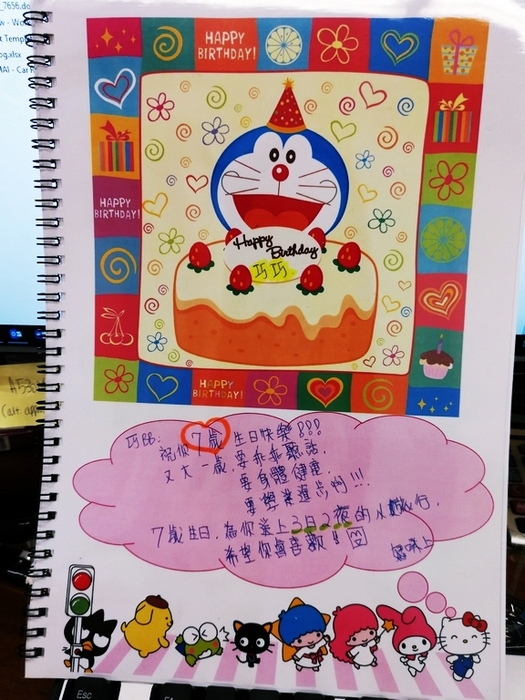 _7656.do
HAPPY
BIRTHDAY!
HAPPY
BIRTHDAY!
Happy
Birthday
巧巧
HAPPY
BIRTHDAY!
巧BB:
祝你7歲生日快樂!!!
又大一歲,要乖乖聽話,
要身體健康,
要學業進步啊!!!
7歲生日,為你送上3日2夜的
希望你會喜歡!
上
Esc